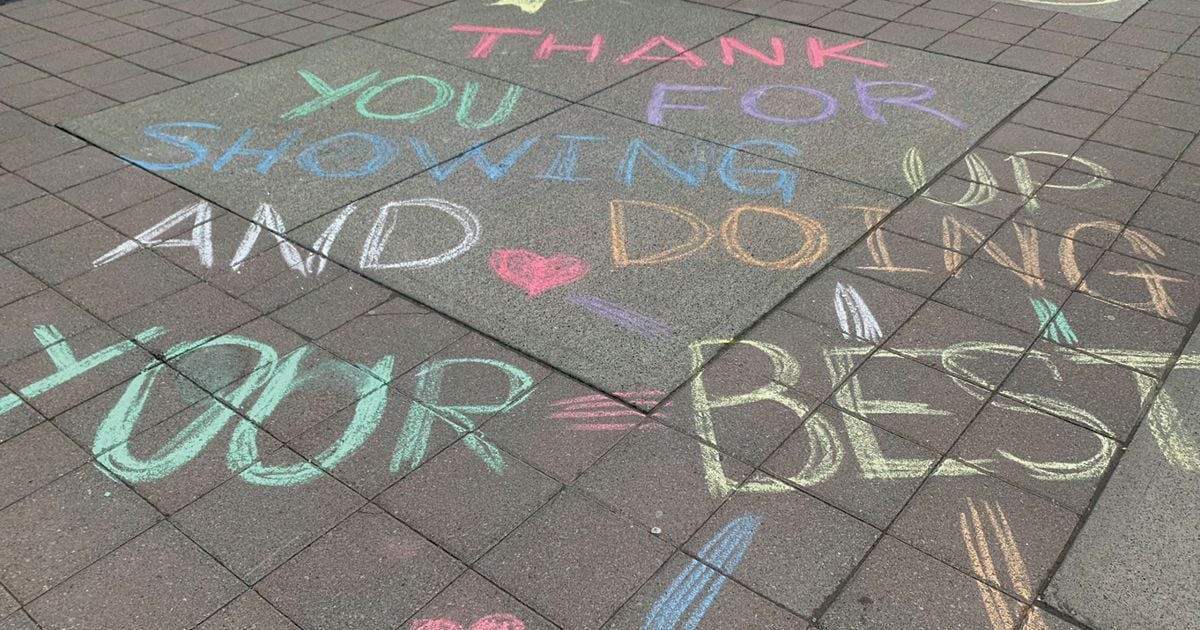 THANK
YOU FOR
SHOWING UP
AND DOING
YOUR BEST